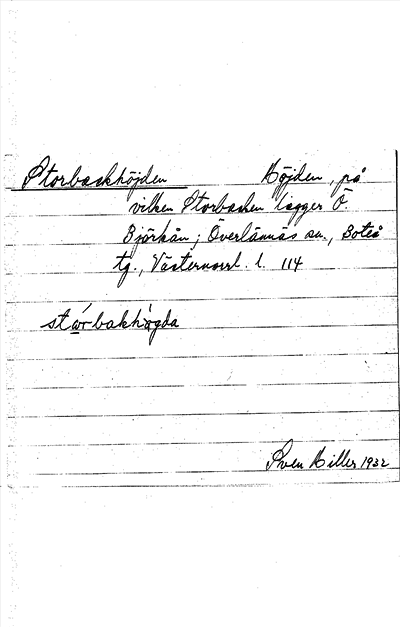 Storbackhöjden Höjden, på
vilken Storbacken ligger Ö.
Björkån; Överlännäs sn., Boteå
tg., Västernorrl. l. 114
Sven Hiller 1932